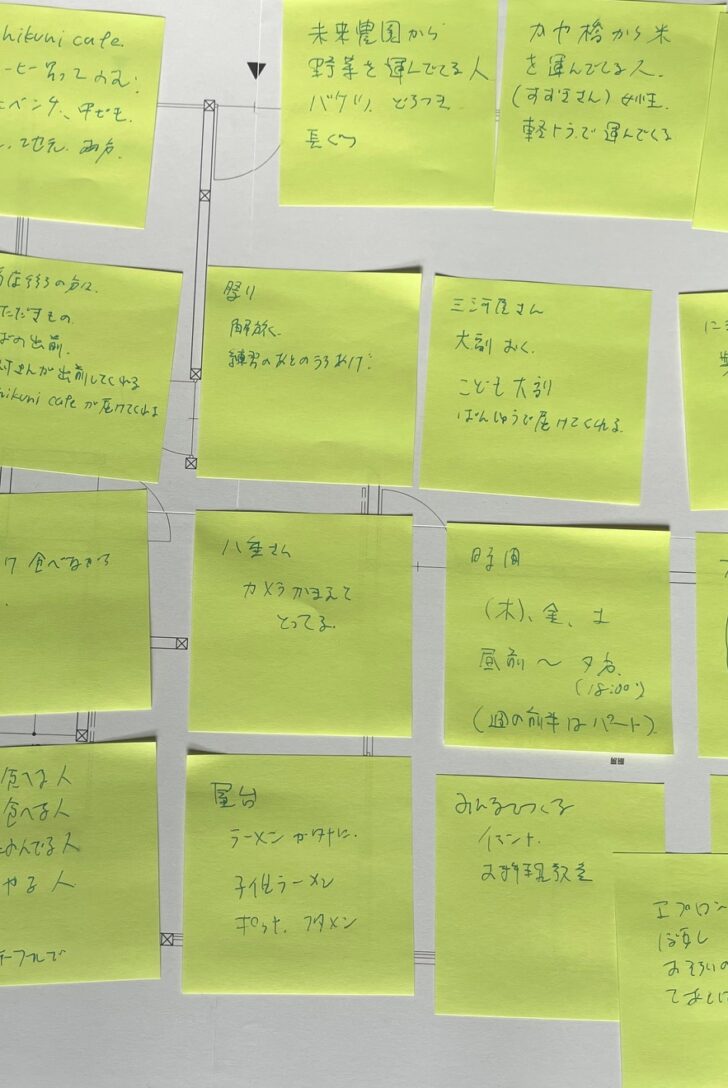 hikuni cafe.
ーヒー買ってのむ.
ベンチ、中でも.
未来農園から
野菜を運んでる人
バケツ、どろつき
長ぐつ
カヤ橋から米
を運んでる人.
(すずきさん) 女性.
軽トラで運んでくる
ただきもの
ばの出前.
さんが出前してくれる
hikuni cafe が届けてくれる
祭り
練習のあとのうちあげ.
三河屋さん
大福 おく.
こども 大福
ばんじゅうで届けてくれる.
食べながら
八重さん
カメラかまえて
とってる.
時間
(木)、金、土
昼前〜夕方.
(18:00)
(週の前半はパート).
厨房
食べる人
食べる人
のんでる人
やる人
テーブルで
屋台
ラーメン
子供ラーメン
ポット. ブタメン
みんなでつくる
イベント.
お料理教室
エプロン
おそろいの